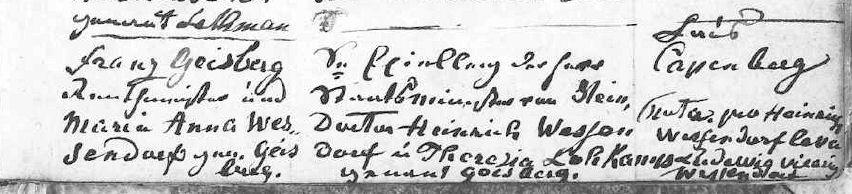 genannt Lohkman
Franz Geisberg
Rentmeister und
Maria Anna Wes-
sendorf gen. Geis
berg.
Se Excellenz der Herr
Staatsminister von Stein,
Doctor Heinrich Wessen
dorf u Theresia Lohkamp
genannt Geisberg.
Cappenberg
(Nota. pro Heinrich
Wessendorf
Ludwig
Wessendorf